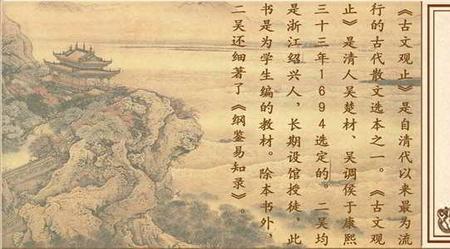 《古文观止》是自清代以来最为流
行的古代散文选本之一。《古文观
止》是清人吴楚材、吴调侯于康熙
三十三年1694选定的。二吴均
是浙江绍兴人，长期设馆授徒，此
书是为学生编的教材。除本书外，
二吴还细著了《纲鉴易知录》。